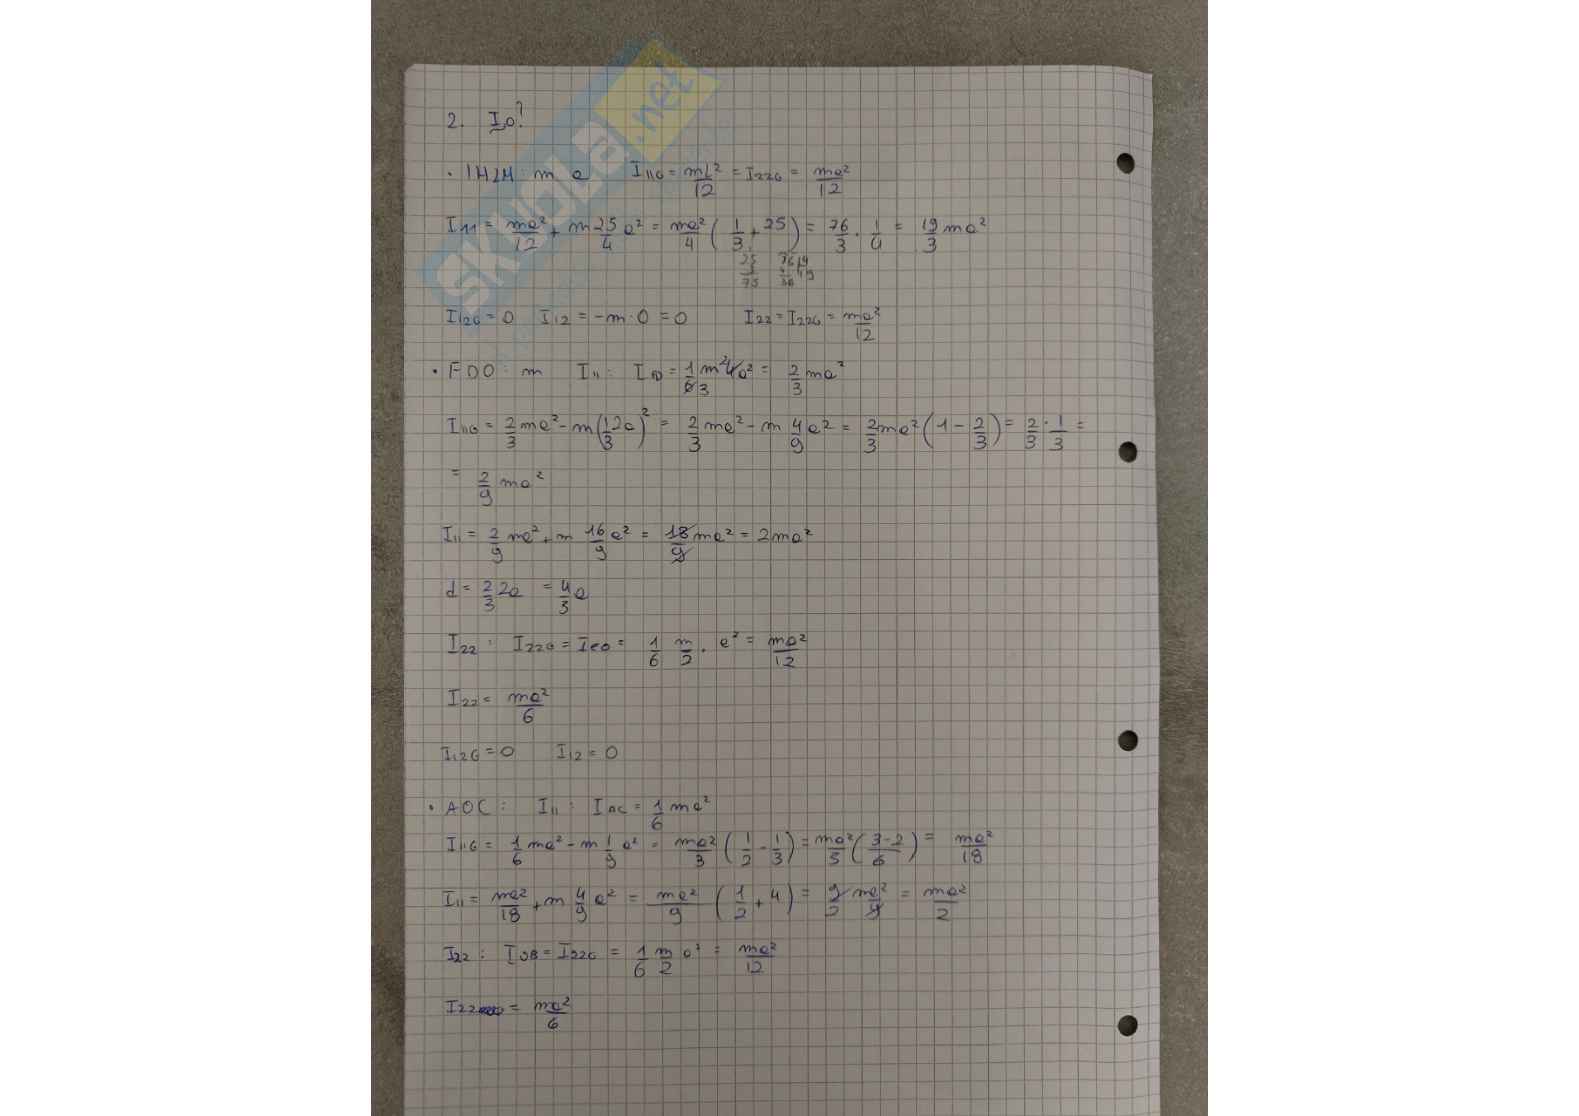 2. I₀?
SKUOLA.net
• 1H2H: m a I₁₁G = mL²/12 = I₂₂G = ma²/12
I₁₁ = ma²/12 + m 25/4 a² = ma²/4 (1/3 + 25) = 76/3 · 1/4 = 19/3 ma²
25 3 75
I₁₂G = 0 I₁₂ = -m·0 = 0 I₂₂ = I₂₂G = ma²/12
• FDO: m I₁₁: I = 1/6 m 4a² = 2/3 ma²
I₁₁G = 2/3 ma² - m(1/3 2a)² = 2/3 ma² - m 4/9 a² = 2/3 ma² (1 - 2/3) = 2/3 · 1/3 =
= 2/9 ma²
I₁₁ = 2/9 ma² + m 16/9 a² = 18/9 ma² = 2ma²
d = 2/3 2a = 4/3 a
I₂₂: I₂₂G = Ieo = 1/6 m/2 · a² = ma²/12
I₂₂ = ma²/6
I₁₂G = 0 I₁₂ = 0
• AOC: I₁₁: IAC = 1/6 ma²
I₁₁G = 1/6 ma² - m 1/9 a² = ma²/3 (1/2 - 1/3) = ma²/3 (3-2/6) = ma²/18
I₁₁ = ma²/18 + m 4/9 a² = ma²/9 (1/2 + 4) = 9/2 ma²/9 = ma²/2
I₂₂: IOB = I₂₂G = 1/6 m/2 a² = ma²/12
I₂₂ = ma²/6